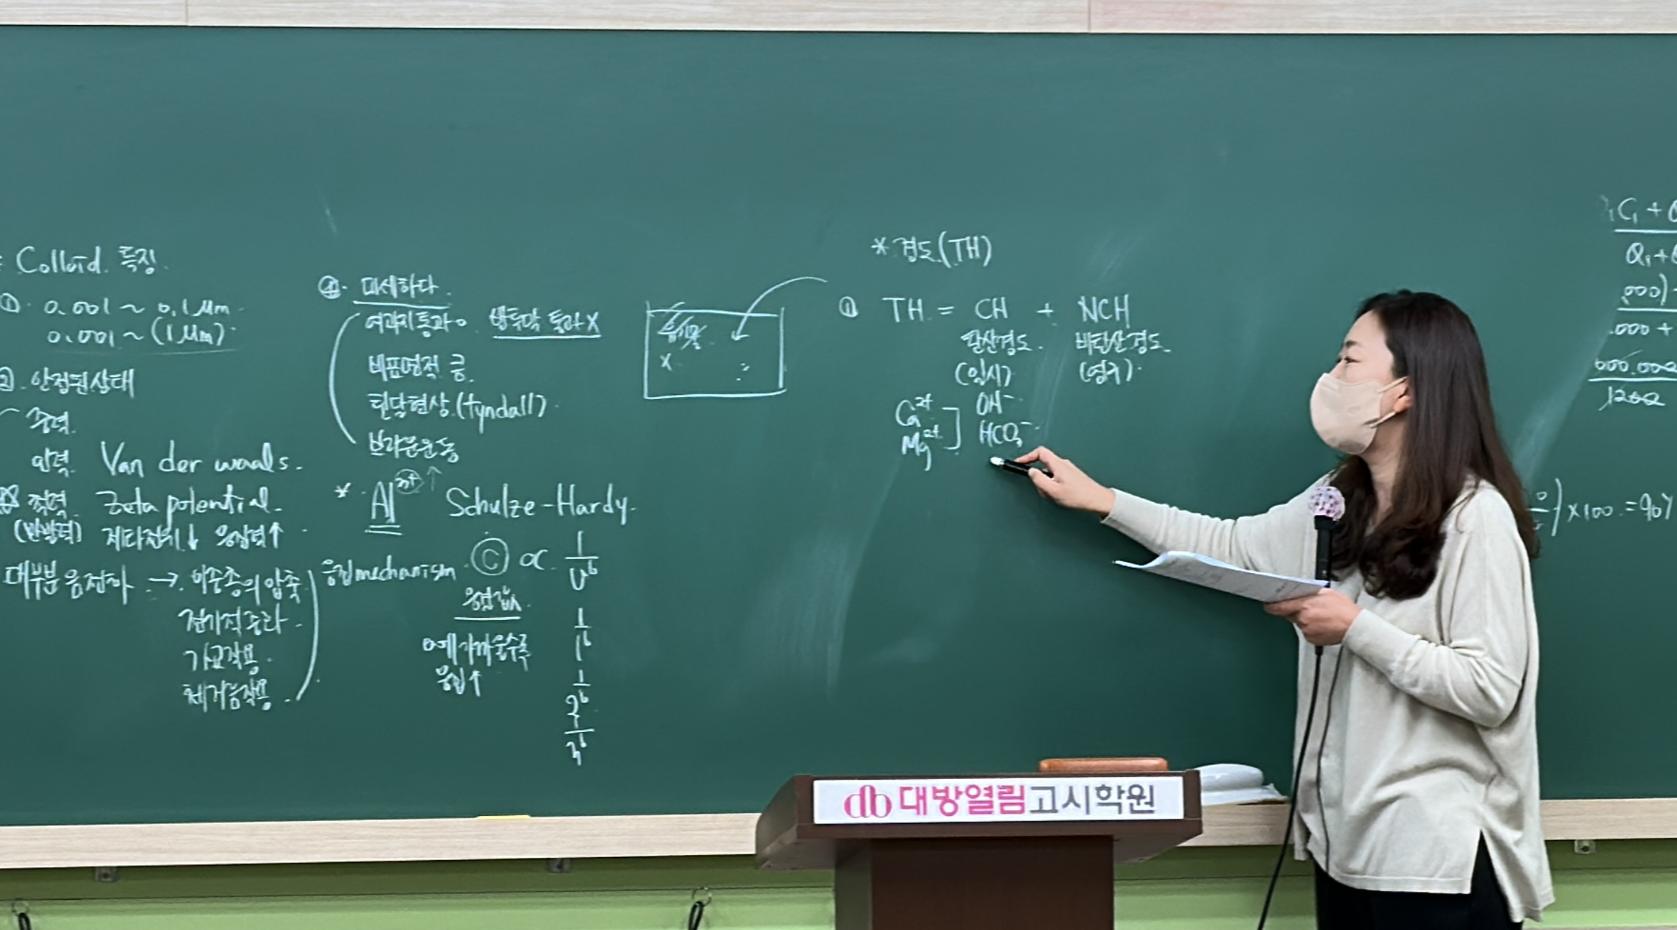 Colloid 특징.
①. 0.001 ~ 0.1μm
0.001 ~ (1μm).
②. 안정된 상태
중력
인력 Van der waals.
척력 Zeta potential.
(반발력) 제타전위↓ 응집력↑
대부분 음전하 → 이중층의 압축
전기적 중화.
가교작용.
체거름작용.
응집 mechanism.
④. 미세하다.
여과지 통과 o 반투막 통과 X
비표면적 큼.
틴달현상 (tyndall).
브라운운동
* Al³⁺ ↑ Schulze-Hardy.
Ⓒ ∝ 1/U⁶
응결값
0에 가까울수록
응집↑
1/1⁶
1/2⁶
1/3⁶
X
* 경도(TH)
① TH = CH + NCH
탄산경도. 비탄산경도.
(일시) (영구).
Ca²⁺ OH⁻
Mg²⁺ HCO₃⁻
C₁ +
Q₁+
000 +
1200
) ×100 = 90%
db 대방열림고시학원